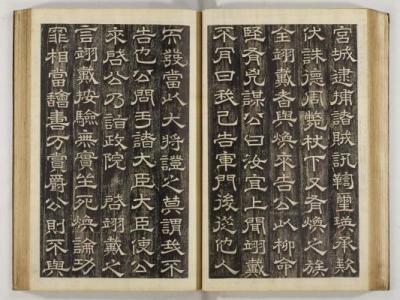 宮城逮捕諸賊訊鞫璽瑛承款
伏誅德周斃杖下又有煥之族
全翊戴者與煥來告公此柳命
堅有兇謀公曰汝宜上聞翊戴
不肎曰我已告軍門後從他人
而發當以大將證之莫謂我不
告也公問于諸大臣大臣使公
來啓公乃詣政院 啓翊戴之
言翊戴按驗無實坐死煥論功
罪相當書方爵公則不與